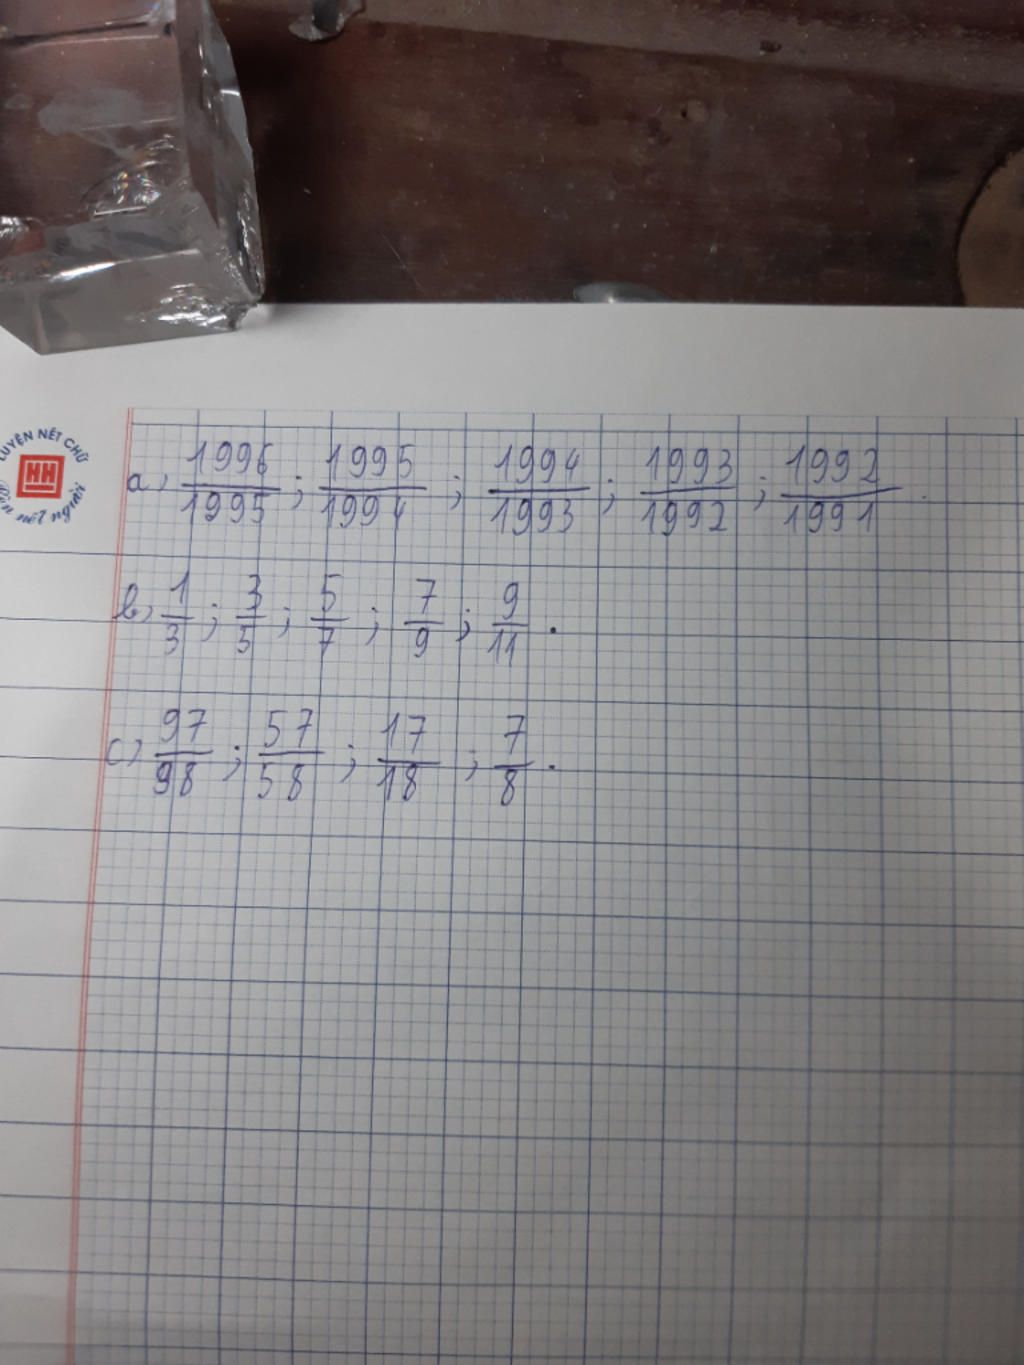 LUYỆN NÉT CHỮ
HH
Rèn nết người
a) 1996/1995 ; 1995/1994 ; 1994/1993 ; 1993/1992 ; 1992/1991 .
b) 1/3 ; 3/5 ; 5/7 ; 7/9 ; 9/11 .
c) 97/98 ; 57/58 ; 17/18 ; 7/8 .